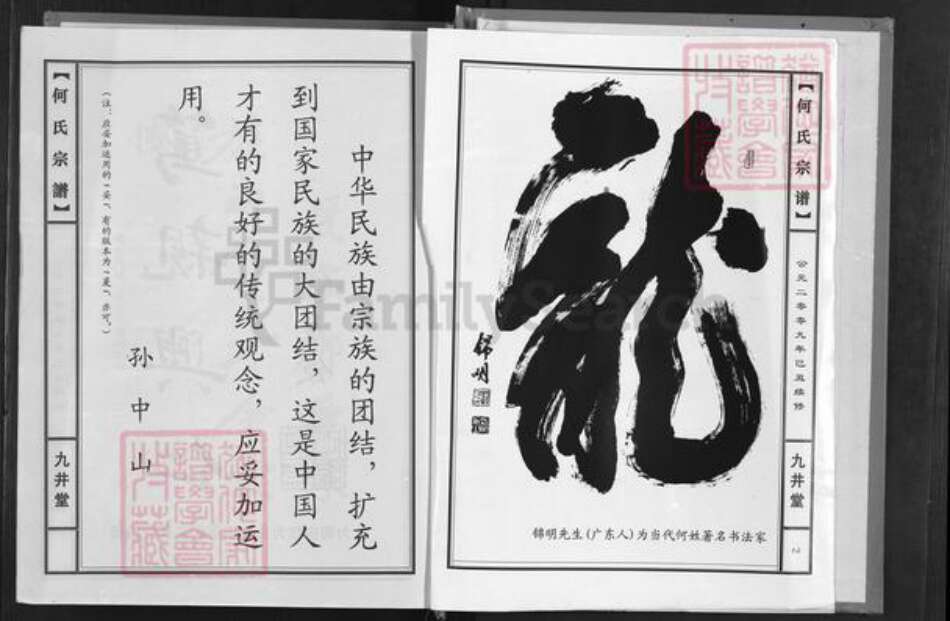 【何氏宗谱】
公元二零零九年己丑续修
九井堂
2
龙
锦明
锦明先生(广东人)为当代何姓著名书法家
中华民族由宗族的团结，扩充
到国家民族的大团结，这是中国人
才有的良好的传统观念，应妥加运
用。
(注：应妥加运用的“妥”，有的版本为“善”，亦可。)
孙中山
【何氏宗谱】
九井堂
FamilySearch
谱学会
收藏